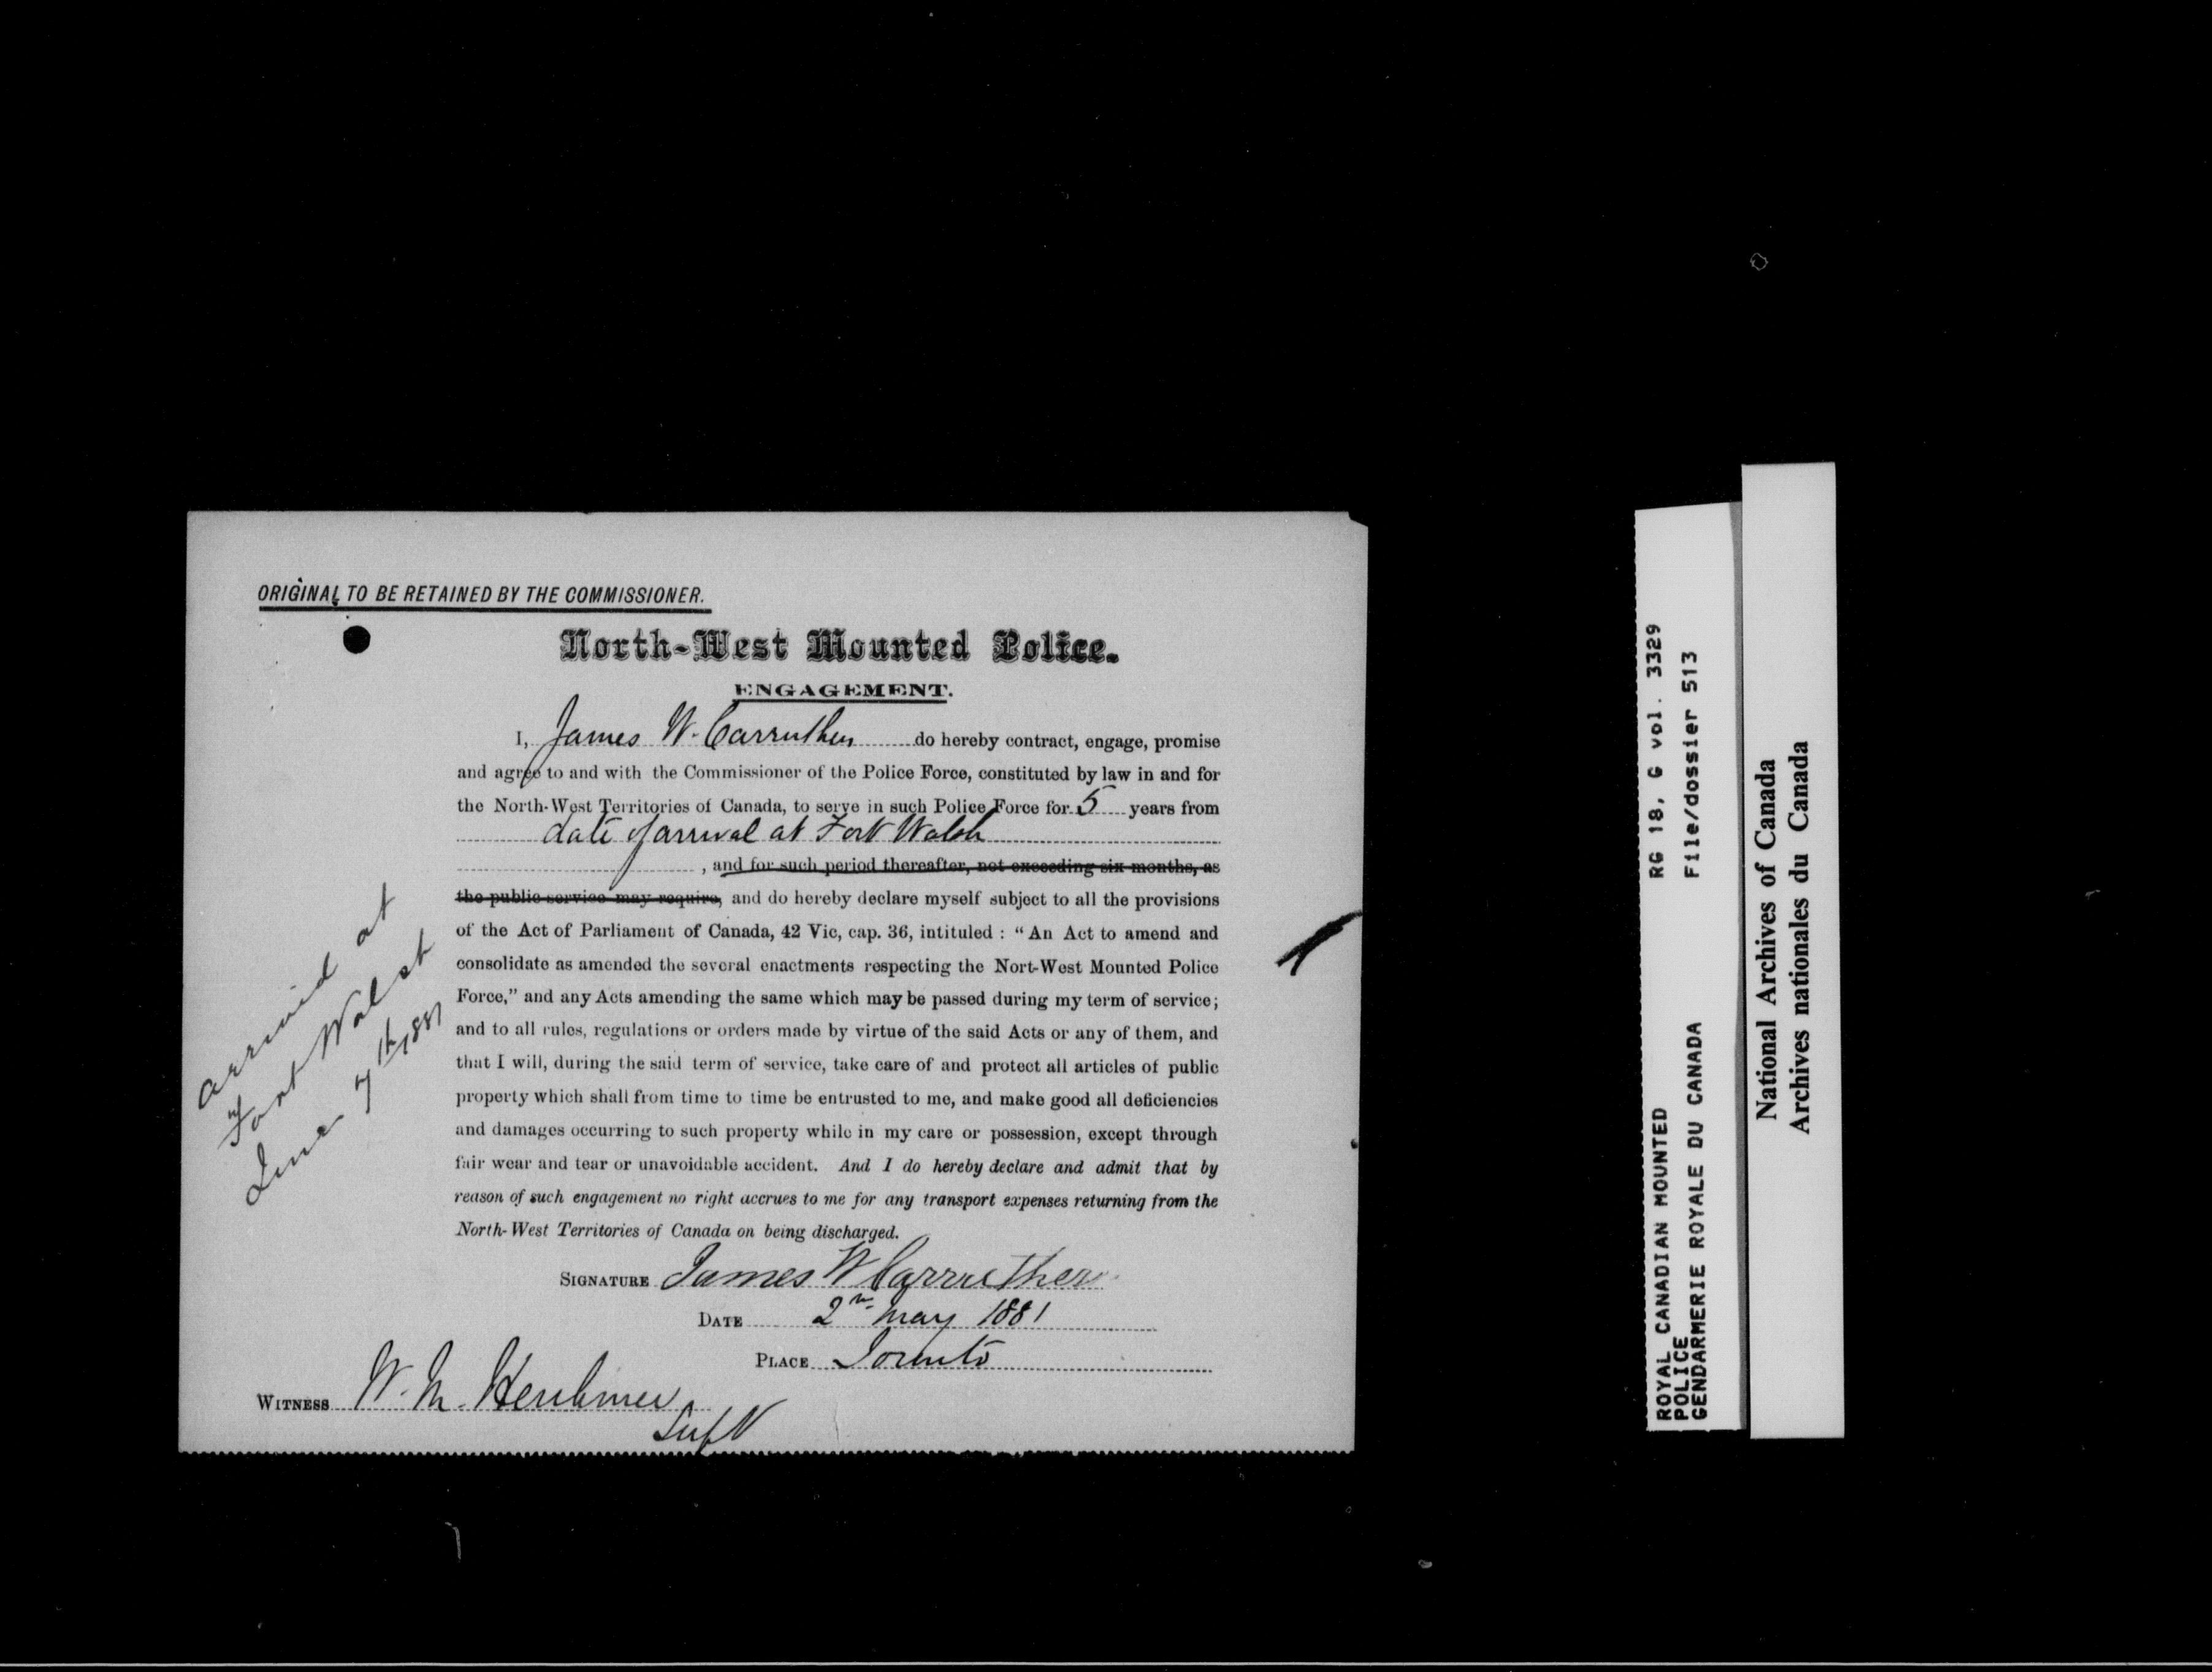 ORIGINAL TO BE RETAINED BY THE COMMISSIONER.
North-West Mounted Police.
ENGAGEMENT.
I, James W. Carruthers do hereby contract, engage, promise
and agree to and with the Commissioner of the Police Force, constituted by law in and for
the North-West Territories of Canada, to serve in such Police Force for 5 years from
date of arrival at Fort Walsh
, and for such period thereafter, not exceeding six months, as
the public service may require, and do hereby declare myself subject to all the provisions
of the Act of Parliament of Canada, 42 Vic, cap. 36, intituled : “An Act to amend and
consolidate as amended the several enactments respecting the Nort-West Mounted Police
Force,” and any Acts amending the same which may be passed during my term of service;
and to all rules, regulations or orders made by virtue of the said Acts or any of them, and
that I will, during the said term of service, take care of and protect all articles of public
property which shall from time to time be entrusted to me, and make good all deficiencies
and damages occurring to such property while in my care or possession, except through
fair wear and tear or unavoidable accident. And I do hereby declare and admit that by
reason of such engagement no right accrues to me for any transport expenses returning from the
North-West Territories of Canada on being discharged.
SIGNATURE James W Carruthers
DATE 2nd May 1881
PLACE Toronto
WITNESS W. M. Herchmer
Supt
arrived at
Fort Walsh
June 7th 1881
RG 18, G vol. 3329
File/dossier 513
ROYAL CANADIAN MOUNTED
POLICE
GENDARMERIE ROYALE DU CANADA
National Archives of Canada
Archives nationales du Canada